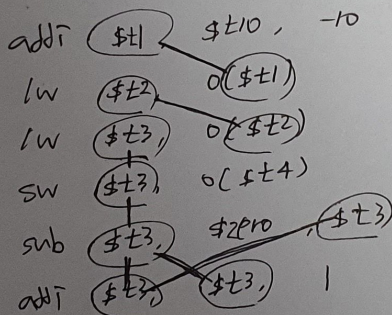 addi $t1, $t10, -10
lw $t2, 0($t1)
lw $t3, 0($t2)
sw $t3, 0($t4)
sub $t3, $zero, $t3
addi $t3, $t3, 1